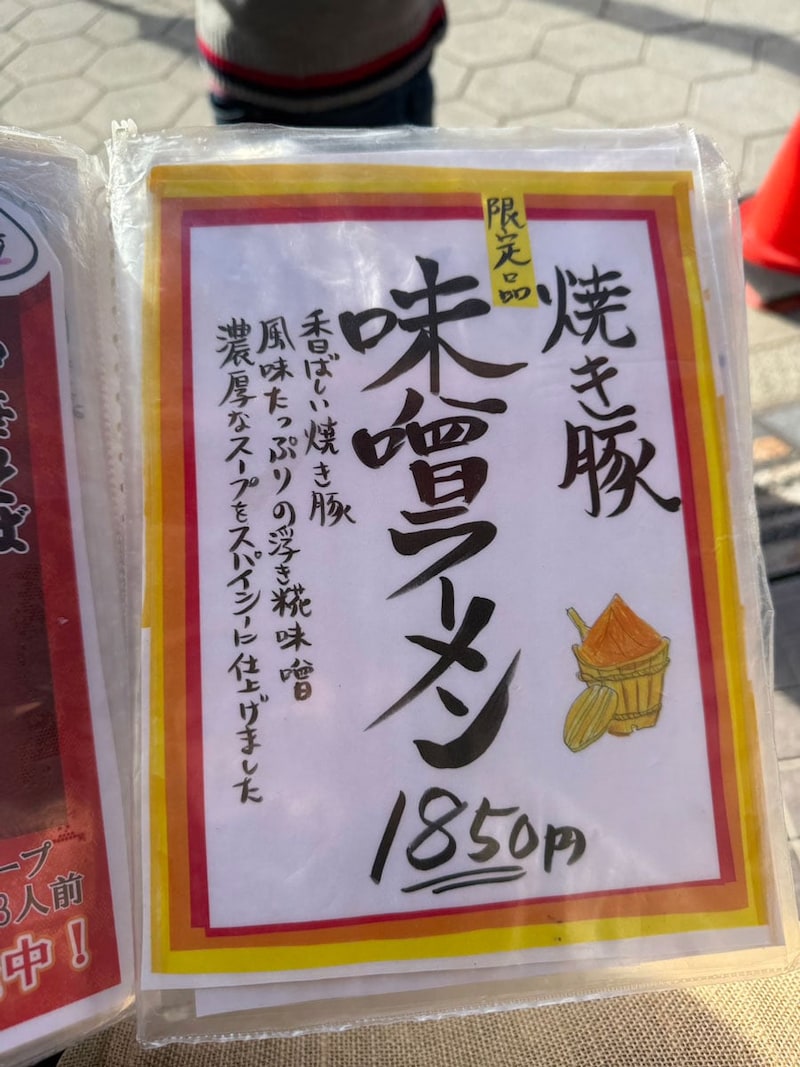 限定品
焼き豚
味噌ラーメン
香ばしい焼き豚
風味たっぷりの浮き糀味噌
濃厚なスープをスパイシーに仕上げました
1850円
きそば
ープ
3人前
中!